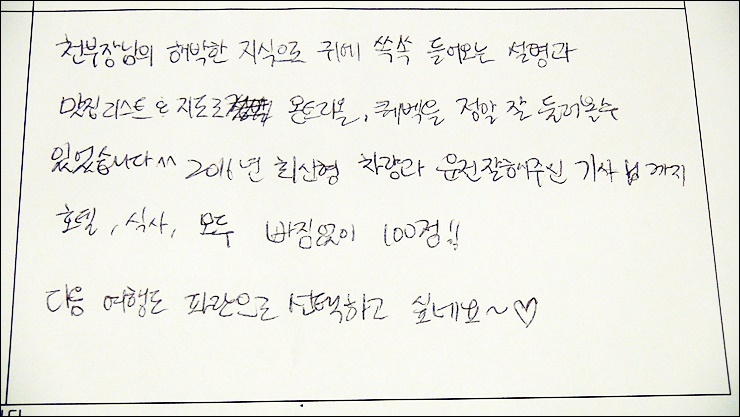 천부장님의 해박한 지식으로 귀에 쏙쏙 들어오는 설명과
맛집리스트와 지도로 몬트리올, 퀘벡을 정말 잘 둘러볼수
있었습니다^^ 2016년 최신형 차량과 운전잘해주신 기사님까지
호텔, 식사, 모두 빠짐없이 100점!!
다음 여행도 파란으로 선택하고 싶네요~♡